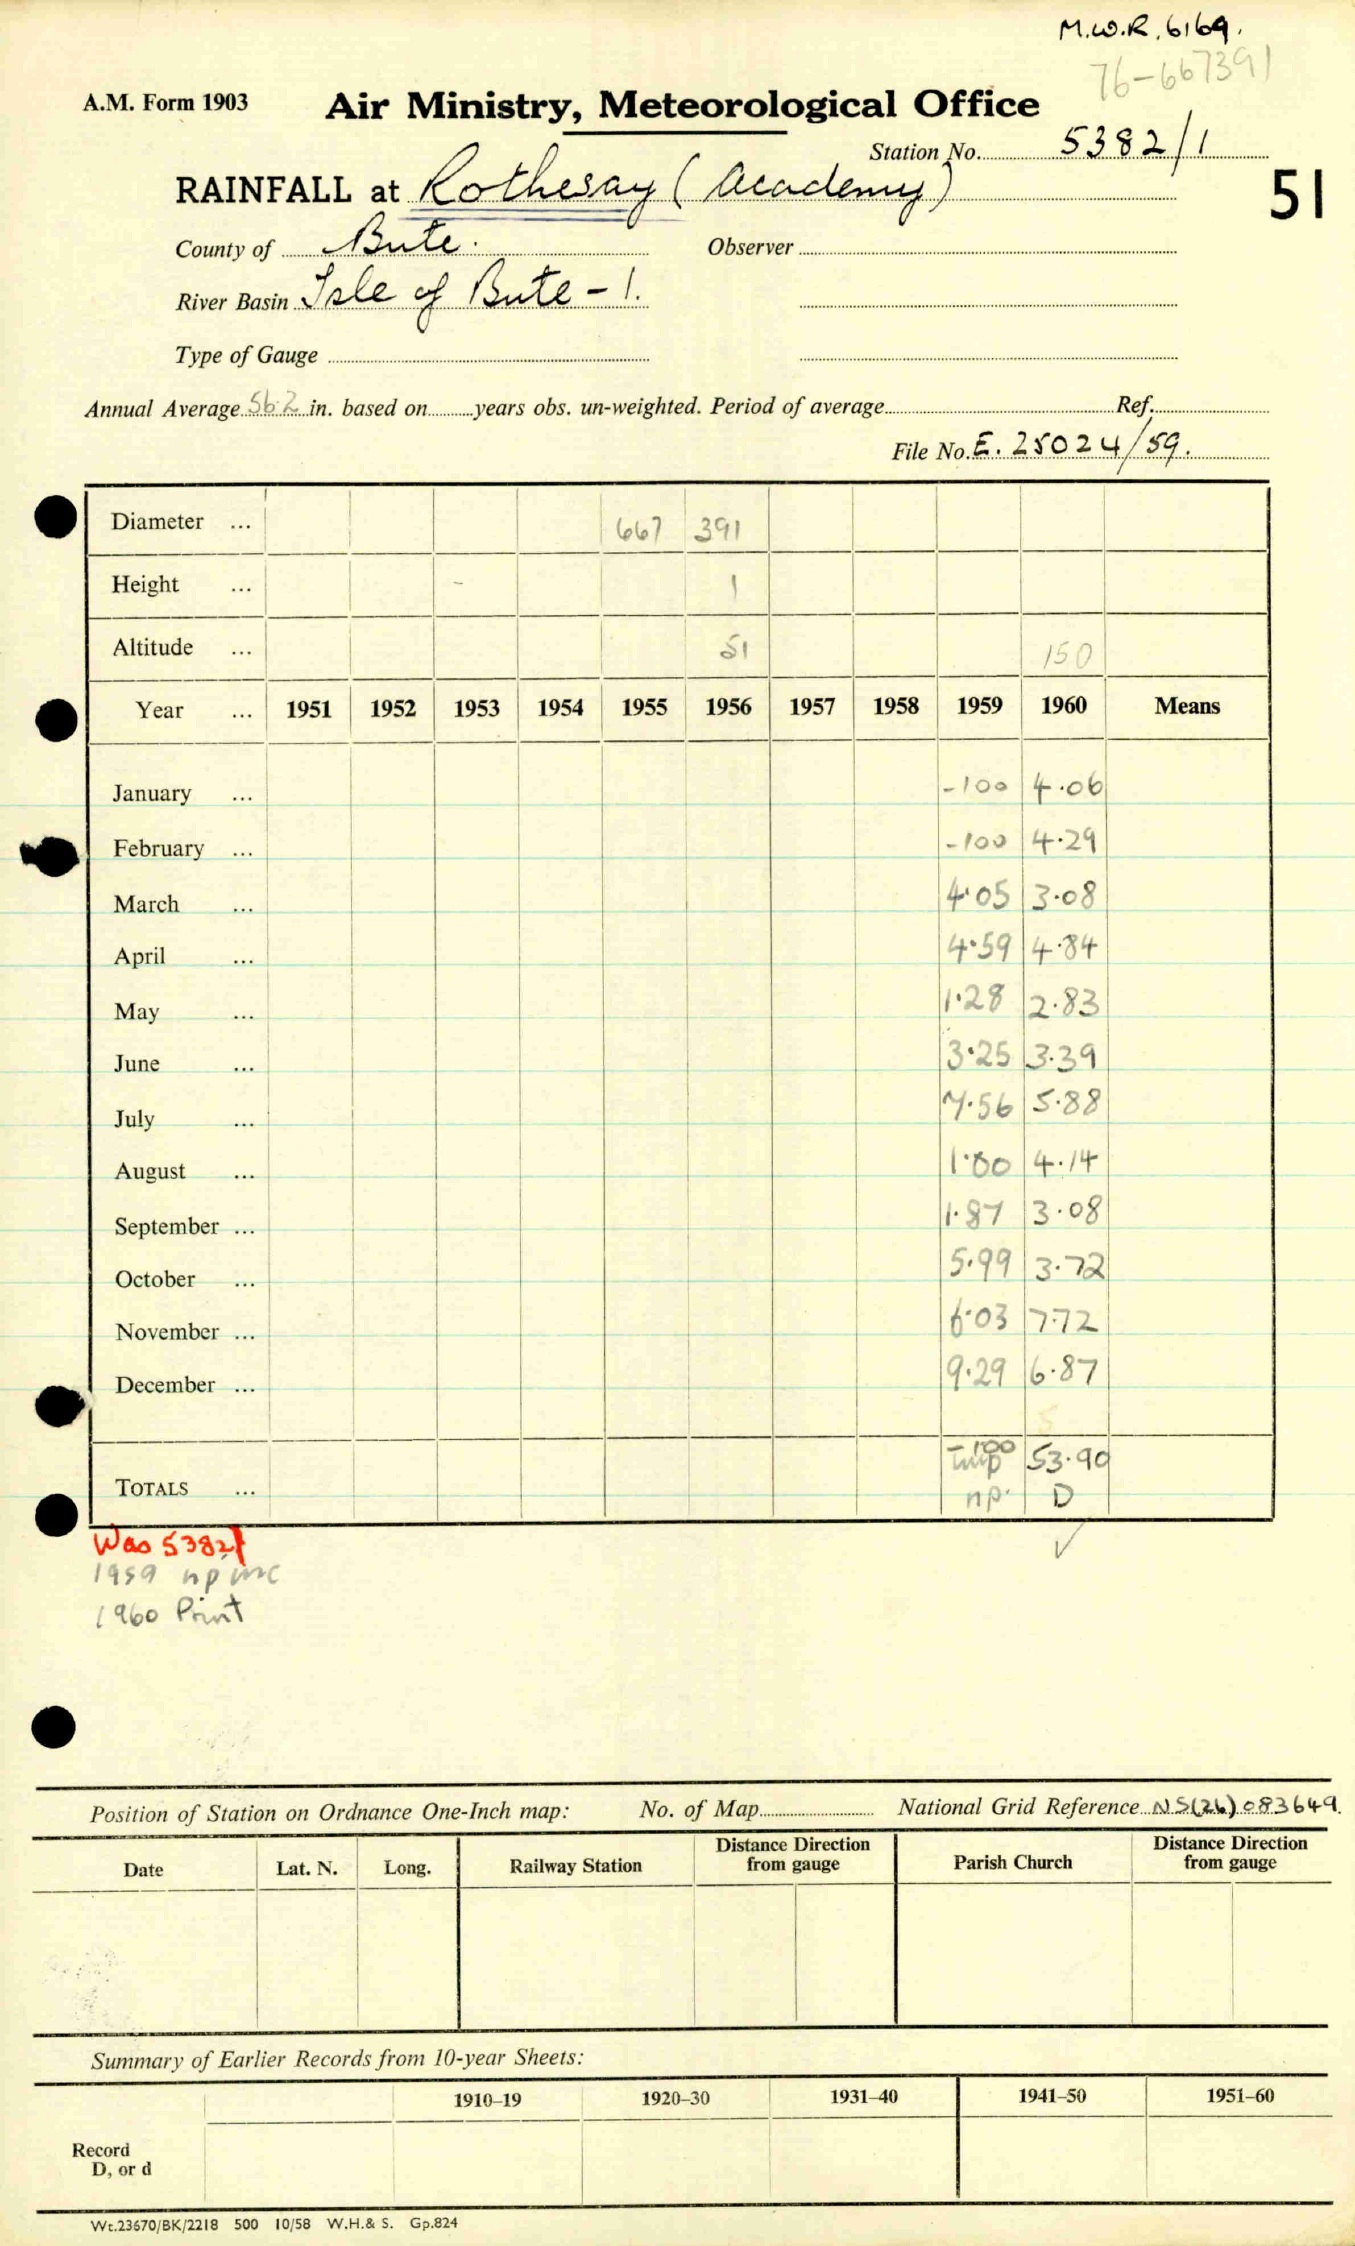 M.W.R. 6169.
76-667391
A.M. Form 1903 Air Ministry, Meteorological Office
Station No. 5382/1
RAINFALL at Rothesay (Academy)
51
County of Bute. Observer
River Basin Isle of Bute - 1.
Type of Gauge
Annual Average 56.2 in. based on years obs. un-weighted. Period of average Ref.
File No. E. 25024/59.
Diameter ... 667 391
Height ... - 1
Altitude ... 51 150
Year ... 1951 1952 1953 1954 1955 1956 1957 1958 1959 1960 Means
January ... -100 4.06
February ... -100 4.29
March ... 4.05 3.08
April ... 4.59 4.84
May ... 1.28 2.83
June ... 3.25 3.39
July ... 7.56 5.88
August ... 1.00 4.14
September ... 1.87 3.08
October ... 5.99 3.72
November ... 6.03 7.72
December ... 9.29 6.87
5
-100 53.90
TOTALS ... np. D
Was 5382/
1959 np inc
1960 Print
Position of Station on Ordnance One-Inch map: No. of Map National Grid Reference NS(26)083649.
Date Lat. N. Long. Railway Station Distance Direction from gauge Parish Church Distance Direction from gauge
Summary of Earlier Records from 10-year Sheets:
1910–19 1920–30 1931–40 1941–50 1951–60
Record
D, or d
Wt.23670/BK/2218 500 10/58 W.H.& S. Gp.824